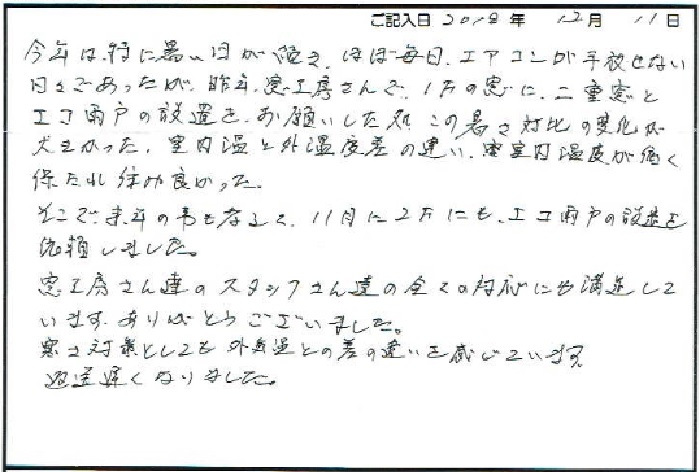 ご記入日 2018年 12月 11日
今年は特に暑い日が続き、ほぼ毎日、エアコンが手放せない
日々であったが、昨年、窓工房さんで、1Fの窓に、二重窓と
エコ雨戸の設置を、お願いした処、この暑さ対比の変化が
大きかった、室内温と外温度差の違い、寝室内温度が低く
保たれ住み良かった。
そこで、来年の事も考えて、11月に2Fにも、エコ雨戸の設置を
依頼しました。
窓工房さん達のスタッフさん達の全ての対応にも満足して
います、ありがとうございました。
寒さ対策としても外気温との差の違いを感じています
返送遅くなりました。